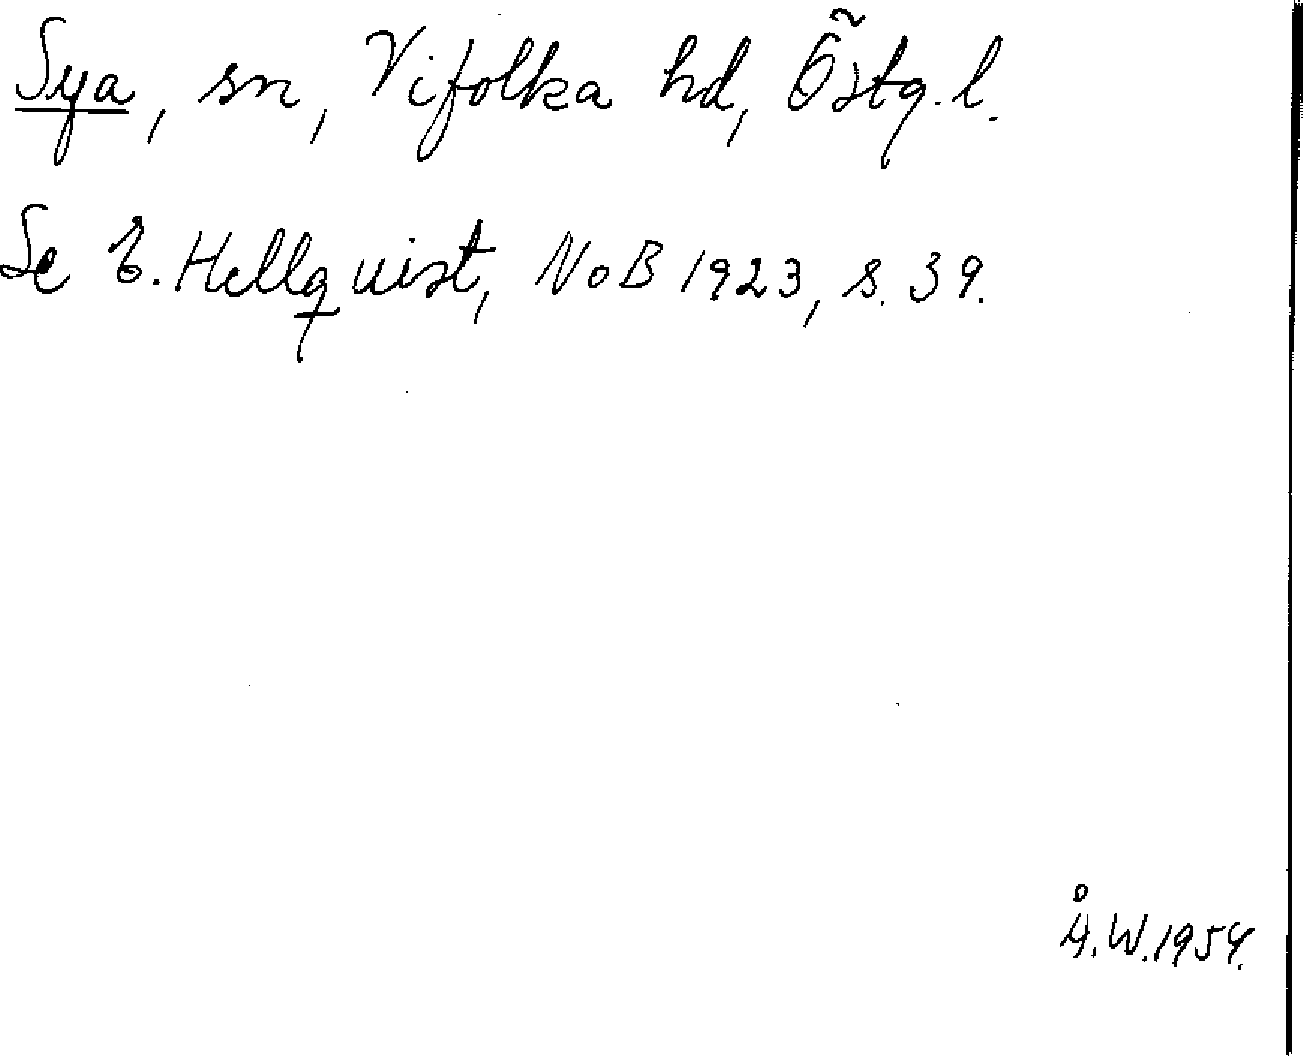 Sya, sn, Vifolka hd, Östg. l.
Se E. Hellquist, NoB 1923, s. 39.
Å.W. 1954.